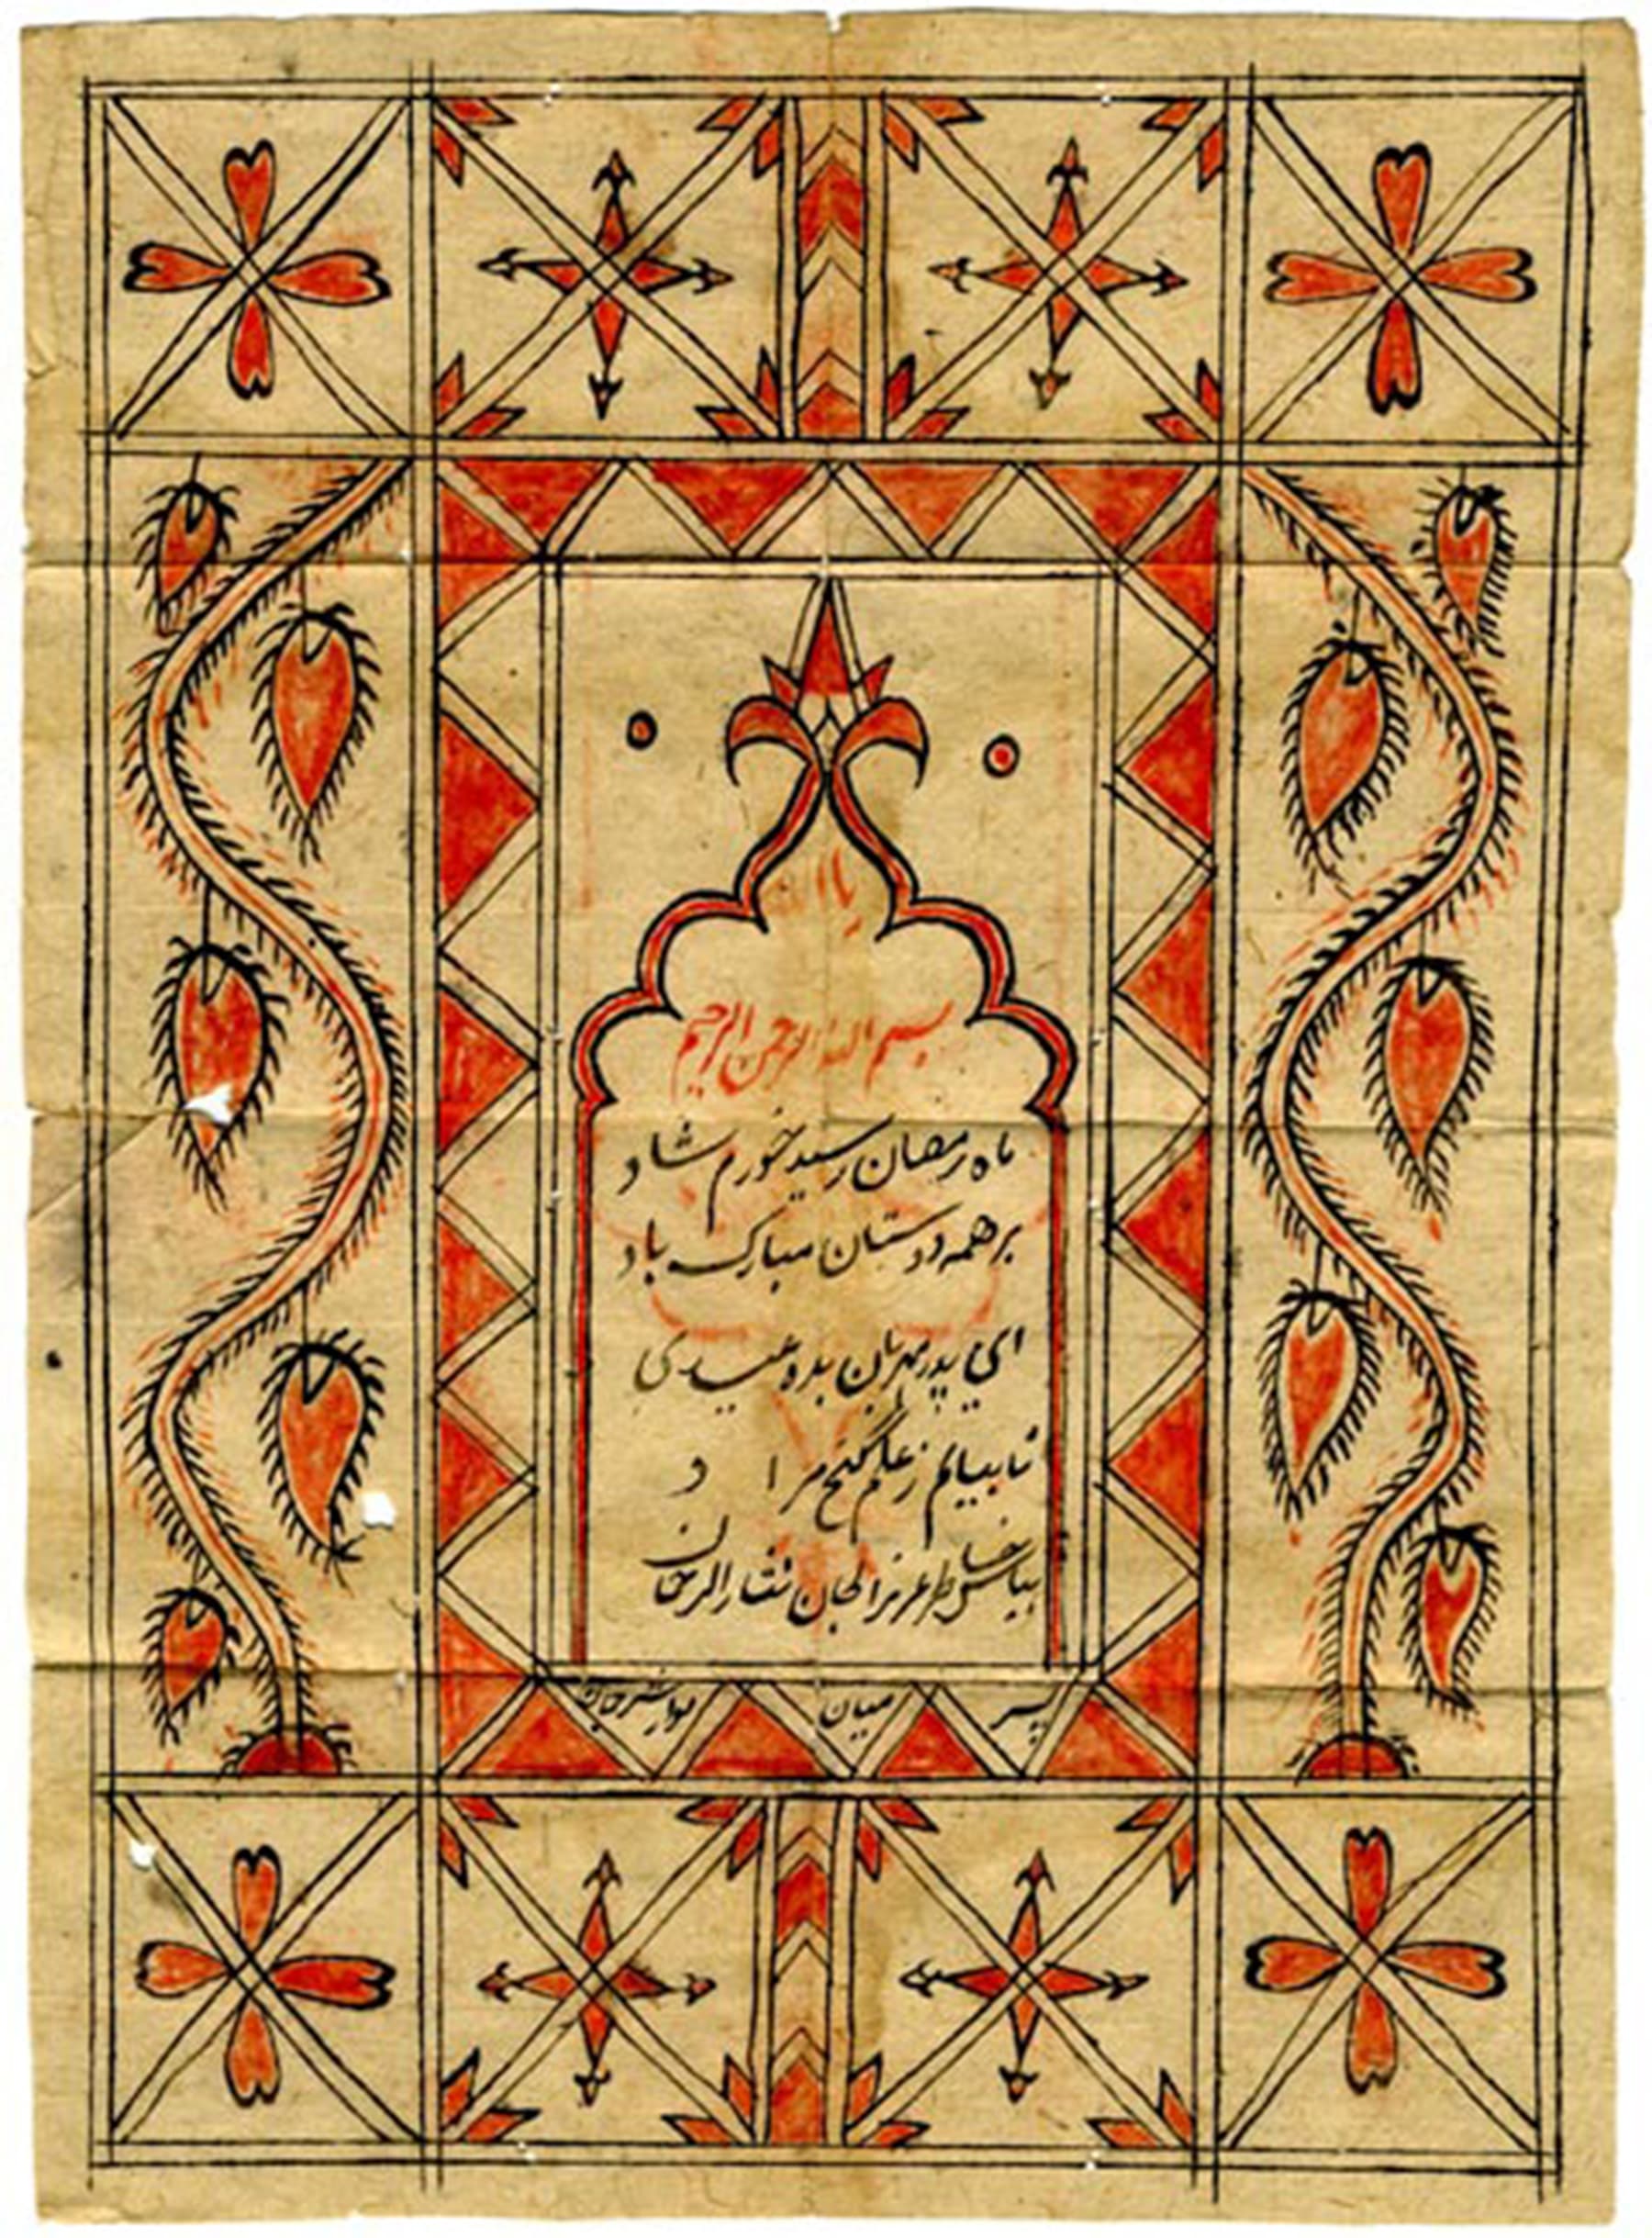 یا الله
بسم الله الرحمن الرحیم
ماه رمضان رسید خورم شاد
بر همه دوستان مبارک باد
ای پدر مهربان بده عیدی
تا بیابم ز علم گنج مراد
عزیز نثار الرحمان
پسر
میان